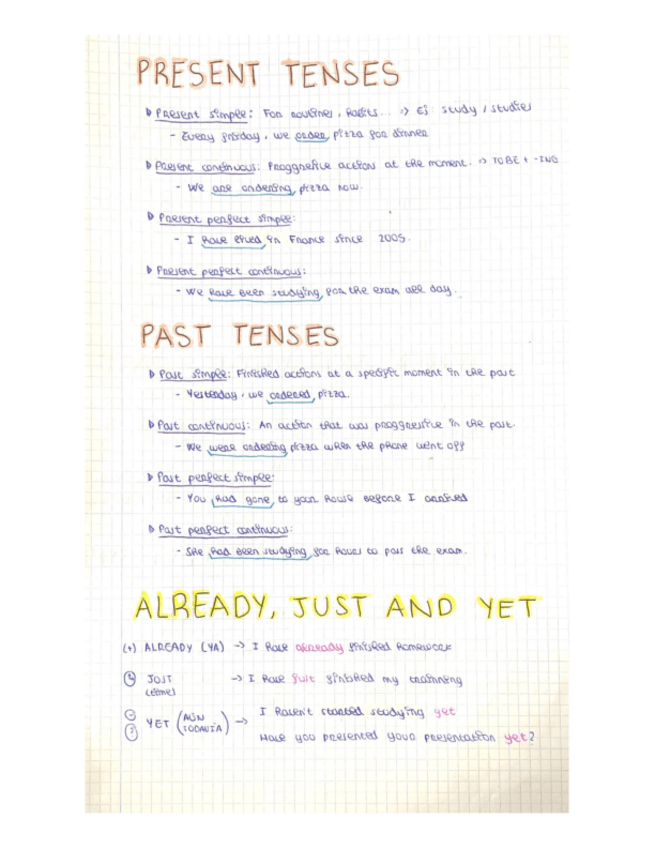 PRESENT TENSES
Present simple: For routines, habits... => Ej: study / studies
- Every friday, we order pizza for dinner
Present continuous: Proggresive action at the moment. => TO BE + -ING
- We are ordering pizza now.
Present perfect simple:
- I have lived in France since 2005.
Present perfect continuous:
- We have been studying for the exam all day.
PAST TENSES
Past simple: Finished actions at a specific moment in the past
- Yesterday, we ordered pizza.
Past continuous: An action that was proggresive in the past.
- We were ordering pizza when the phone went off
Past perfect simple:
- You had gone to your house before I arrived
Past perfect continuous:
- She had been studying for hours to pass the exam.
ALREADY, JUST AND YET
(+) ALREADY (YA) -> I have already finished homework
JUST -> I have just finished my training
YET (AÚN TODAVÍA) -> I haven't started studying yet
Have you presented your presentation yet?